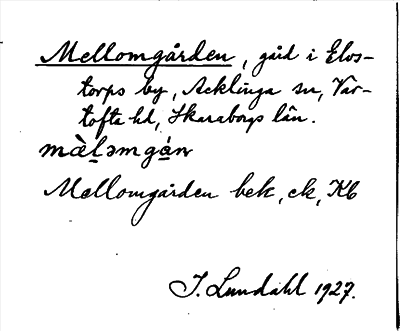 Mellomgården, gård i Elvs-
torps by, Acklinga sn, Var-
tofta hd, Skaraborgs län.
mæ̀l̠əmgá̠n
Mellomgården bek, ek, Kb
I. Lundahl 1927.